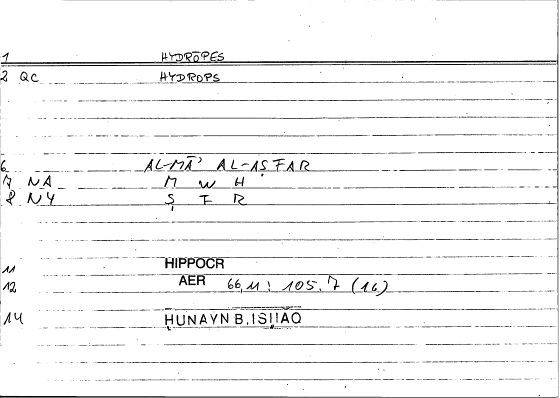 1 HYDRŌPES
2 QC HYDROPS
6 AL-MĀʾ AL-AṢFAR
7 NA M W H
8 NY Ṣ F R
11 HIPPOCR
12 AER 66,11: 105.7 (16)
14 ḤUNAYN B. ISḤĀQ